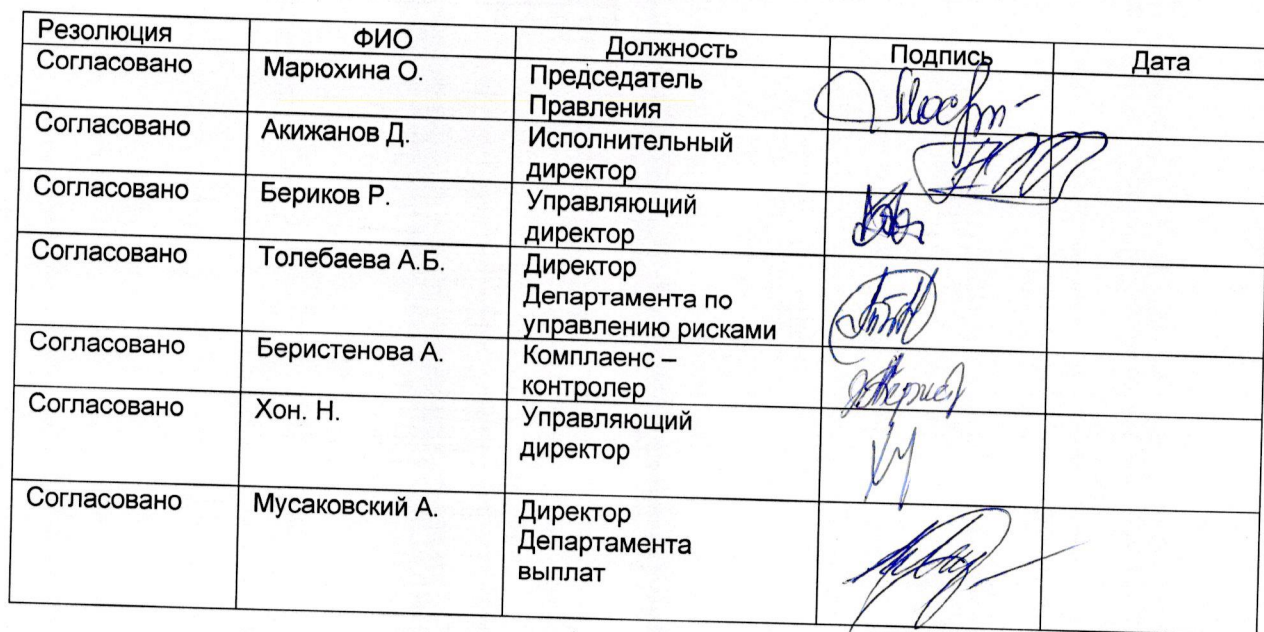 Резолюция ФИО Должность Подпись Дата
Согласовано Марюхина О. Председатель
Правления
Согласовано Акижанов Д. Исполнительный
директор
Согласовано Бериков Р. Управляющий
директор
Согласовано Толебаева А.Б. Директор
Департамента по
управлению рисками
Согласовано Беристенова А. Комплаенс –
контролер
Согласовано Хон. Н. Управляющий
директор
Согласовано Мусаковский А. Директор
Департамента
выплат